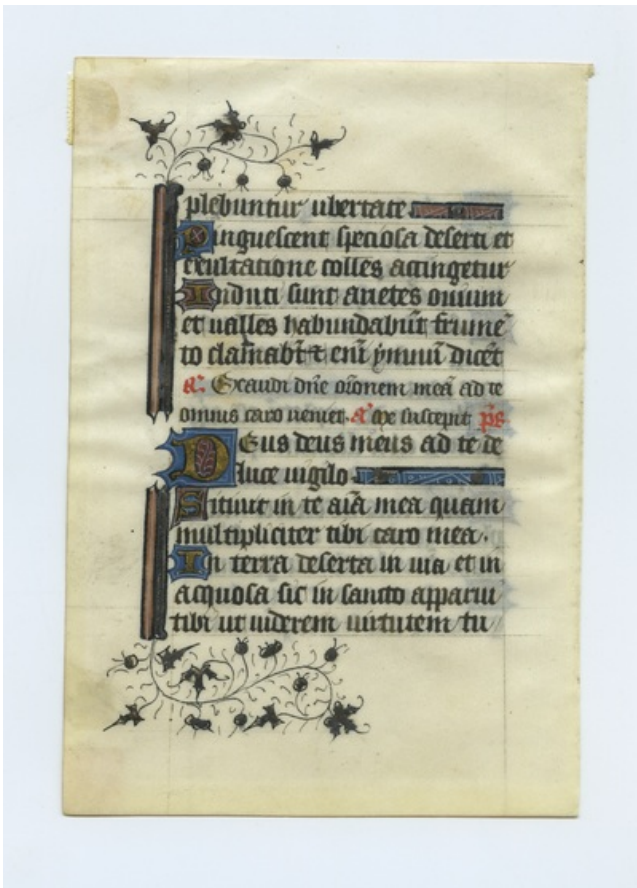 plebuntur ubertate
Pinguescent speciosa deserti et
exultatione colles accingetur
Induti sunt arietes ouium
et ualles habundabūt frumē
to clamabt̄ & enī ymnū dicēt
a᷑. Exaudi dn̄e or̄onem meā ad te
omnis caro ueniet. a᷑ me suscepit p̄s
Deus deus meus ad te de
luce uigilo
Sitiuit in te aīa mea quam
multipliciter tibi caro mea.
In terra deserta in uia et in
acquosa sic in sancto apparui
tibi ut uiderem uirtutem tu